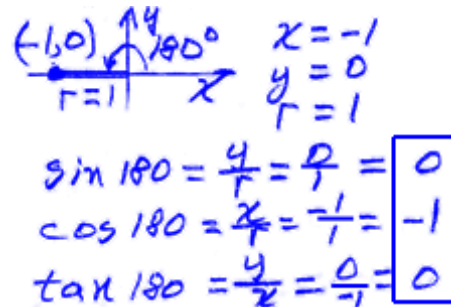 y
(-1,0) 180°
r=1 x
x = -1
y = 0
r = 1
sin 180 = y/r = 0/1 = 0
cos 180 = x/r = -1/1 = -1
tan 180 = y/x = 0/-1 = 0